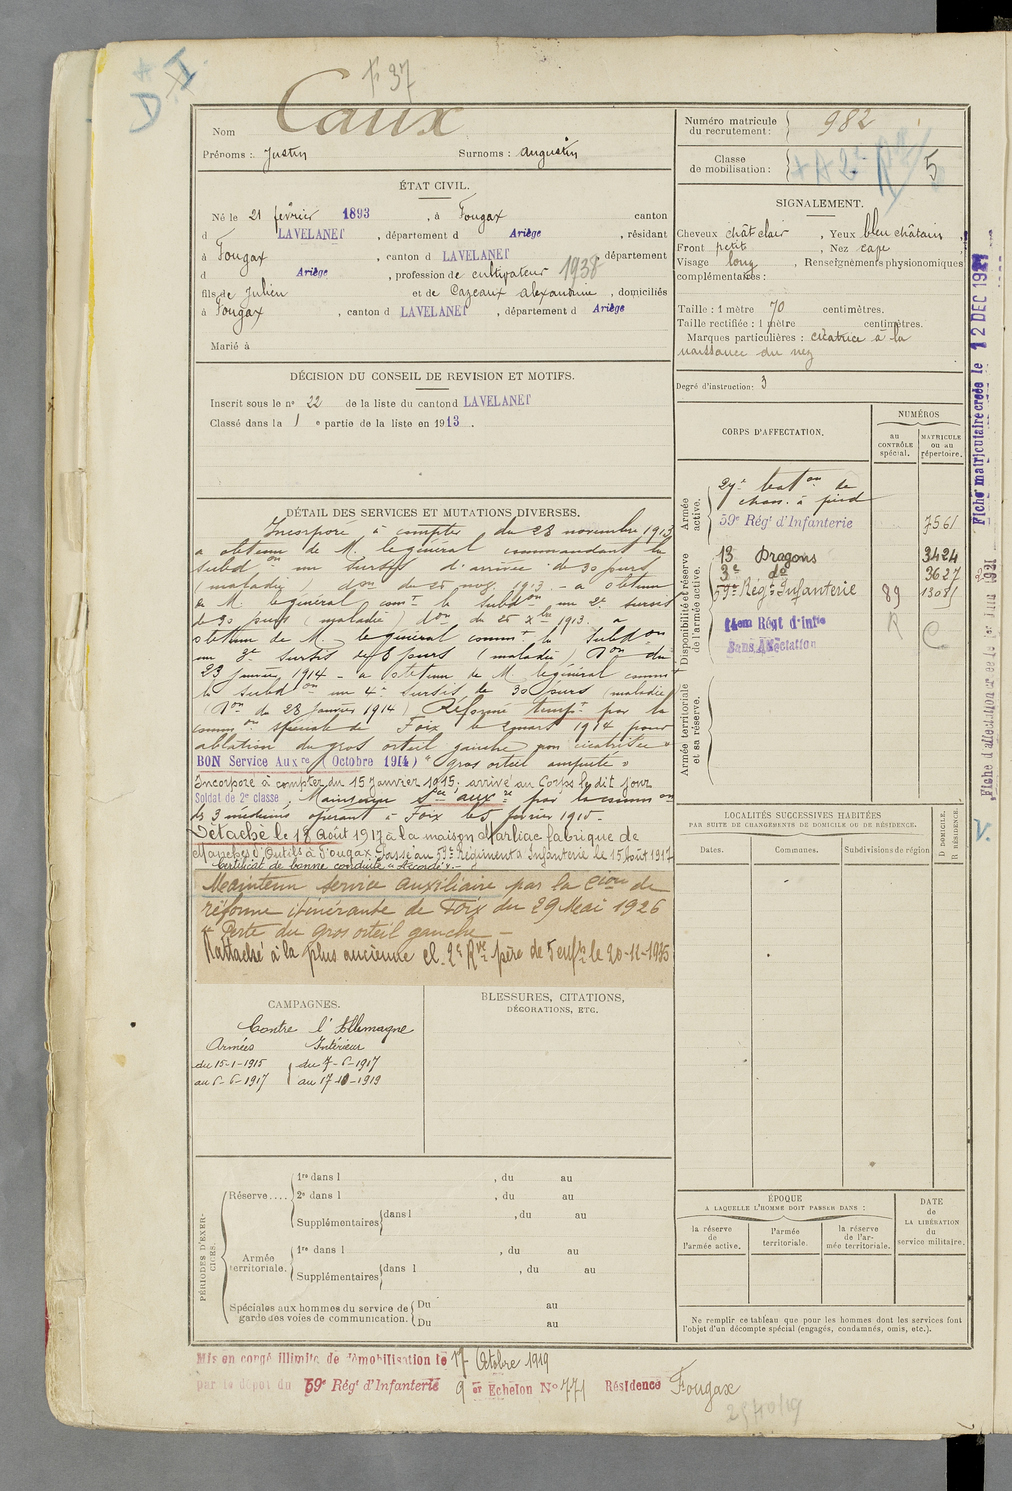 F 37
D
Nom Caux
Prénoms : Justin Surnoms : Augustin
Numéro matricule du recrutement : 982
Classe de mobilisation : 5
ÉTAT CIVIL.
Né le 21 février 1893, à Fougax canton
d LAVELANET, département d Ariège, résidant
à Fougax, canton d LAVELANET département
d Ariège, profession de cultivateur 1938
fils de Julien et de Cazeaux Alexandrine, domiciliés
à Fougax, canton d LAVELANET, département d Ariège
Marié à
DÉCISION DU CONSEIL DE REVISION ET MOTIFS.
Inscrit sous le no 22 de la liste du canton d LAVELANET
Classé dans la 1 e partie de la liste en 1913.
DÉTAIL DES SERVICES ET MUTATIONS DIVERSES.
Incorporé à compter du 28 novembre 1913
a obtenu de M. le général commandant la
subdon un sursis d'arrivée de 30 jours
(maladie) don du 25 nov. 1913 - a obtenu
de M. le général comt la subdon un 2e sursis
de 30 jours (maladie) don du 25 Xbre 1913. a
obtenu de M. le général commt la subdon
un 3e sursis de 8 jours (maladie) Don du
23 janvier 1914 - a obtenu de M. le général commt
la subdon un 4e sursis de 30 jours (maladie)
(Don du 28 janvier 1914) Réformé tempt par la
common spéciale de Foix le 2 mars 1914 pour
ablation du gros orteil gauche non cicatrisée
BON Service Auxre (Octobre 1914) "gros orteil amputé"
Incorporé à compter du 15 Janvier 1915; arrivé au Corps le dit jour
Soldat de 2e classe. Maintenu Sce auxre par la common
des 3 médecins opérant à Foix le 5 février 1915 -
Détaché le 18 Août 1917 à la maison Marliac fabrique de
Manches d'Outils à Fougax. Passé au 59e Régiment d'Infanterie le 15 Août 1917
Certificat de bonne conduite "Accordé". -
Maintenu service auxiliaire par la Cion de
réforme itinérante de Foix du 29 Mai 1926
"Perte du gros orteil gauche -
Rattaché à la plus ancienne cl. 2e Rve père de 5 enfts le 20-11-1935
CAMPAGNES.
Contre l'Allemagne
Armées Intérieur
du 15-1-1915 du 7-6-1917
au 6-6-1917 au 17-10-1919
BLESSURES, CITATIONS,
DÉCORATIONS, ETC.
PÉRIODES D'EXERCICES.
Réserve.... 1re dans l , du au
2e dans l , du au
Supplémentaires dans l , du au
Armée territoriale. 1re dans l , du au
Supplémentaires dans l , du au
Spéciales aux hommes du service de garde des voies de communication. Du au
Du au
SIGNALEMENT.
Cheveux chât clair, Yeux bleu châtain
Front petit, Nez cave
Visage long, Renseignements physionomiques
complémentaires :
Taille : 1 mètre 70 centimètres.
Taille rectifiée : 1 mètre centimètres.
Marques particulières : cicatrice à la
naissance du nez
Degré d'instruction : 3
CORPS D'AFFECTATION.
NUMÉROS
au CONTRÔLE spécial.
MATRICULE ou au répertoire.
Armée active.
27e baton de
chass. à pied
59e Régt d'Infanterie 7561
Disponibilité et réserve de l'armée active.
13 Dragons 3424
3e do 3627
59e Régt Infanterie 89
14em Régt d'Infie R C
Sans Affectation
Armée territoriale et sa réserve.
LOCALITÉS SUCCESSIVES HABITÉES
PAR SUITE DE CHANGEMENTS DE DOMICILE OU DE RÉSIDENCE.
Dates. Communes. Subdivisions de région
D DOMICILE.
R RÉSIDENCE
ÉPOQUE
A LAQUELLE L'HOMME DOIT PASSER DANS :
la réserve de l'armée active.
l'armée territoriale.
la réserve de l'armée territoriale.
DATE de LA LIBÉRATION du service militaire.
Ne remplir ce tableau que pour les hommes dont les services font
l'objet d'un décompte spécial (engagés, condamnés, omis, etc.).
Fiche matriculaire créée le 12 DEC 1921
V.
Mis en congé illimité de démobilisation le 17 Octobre 1919
par le dépôt du 59e Régt d'Infanterie 9 er Echelon No 771 Résidence Fougax